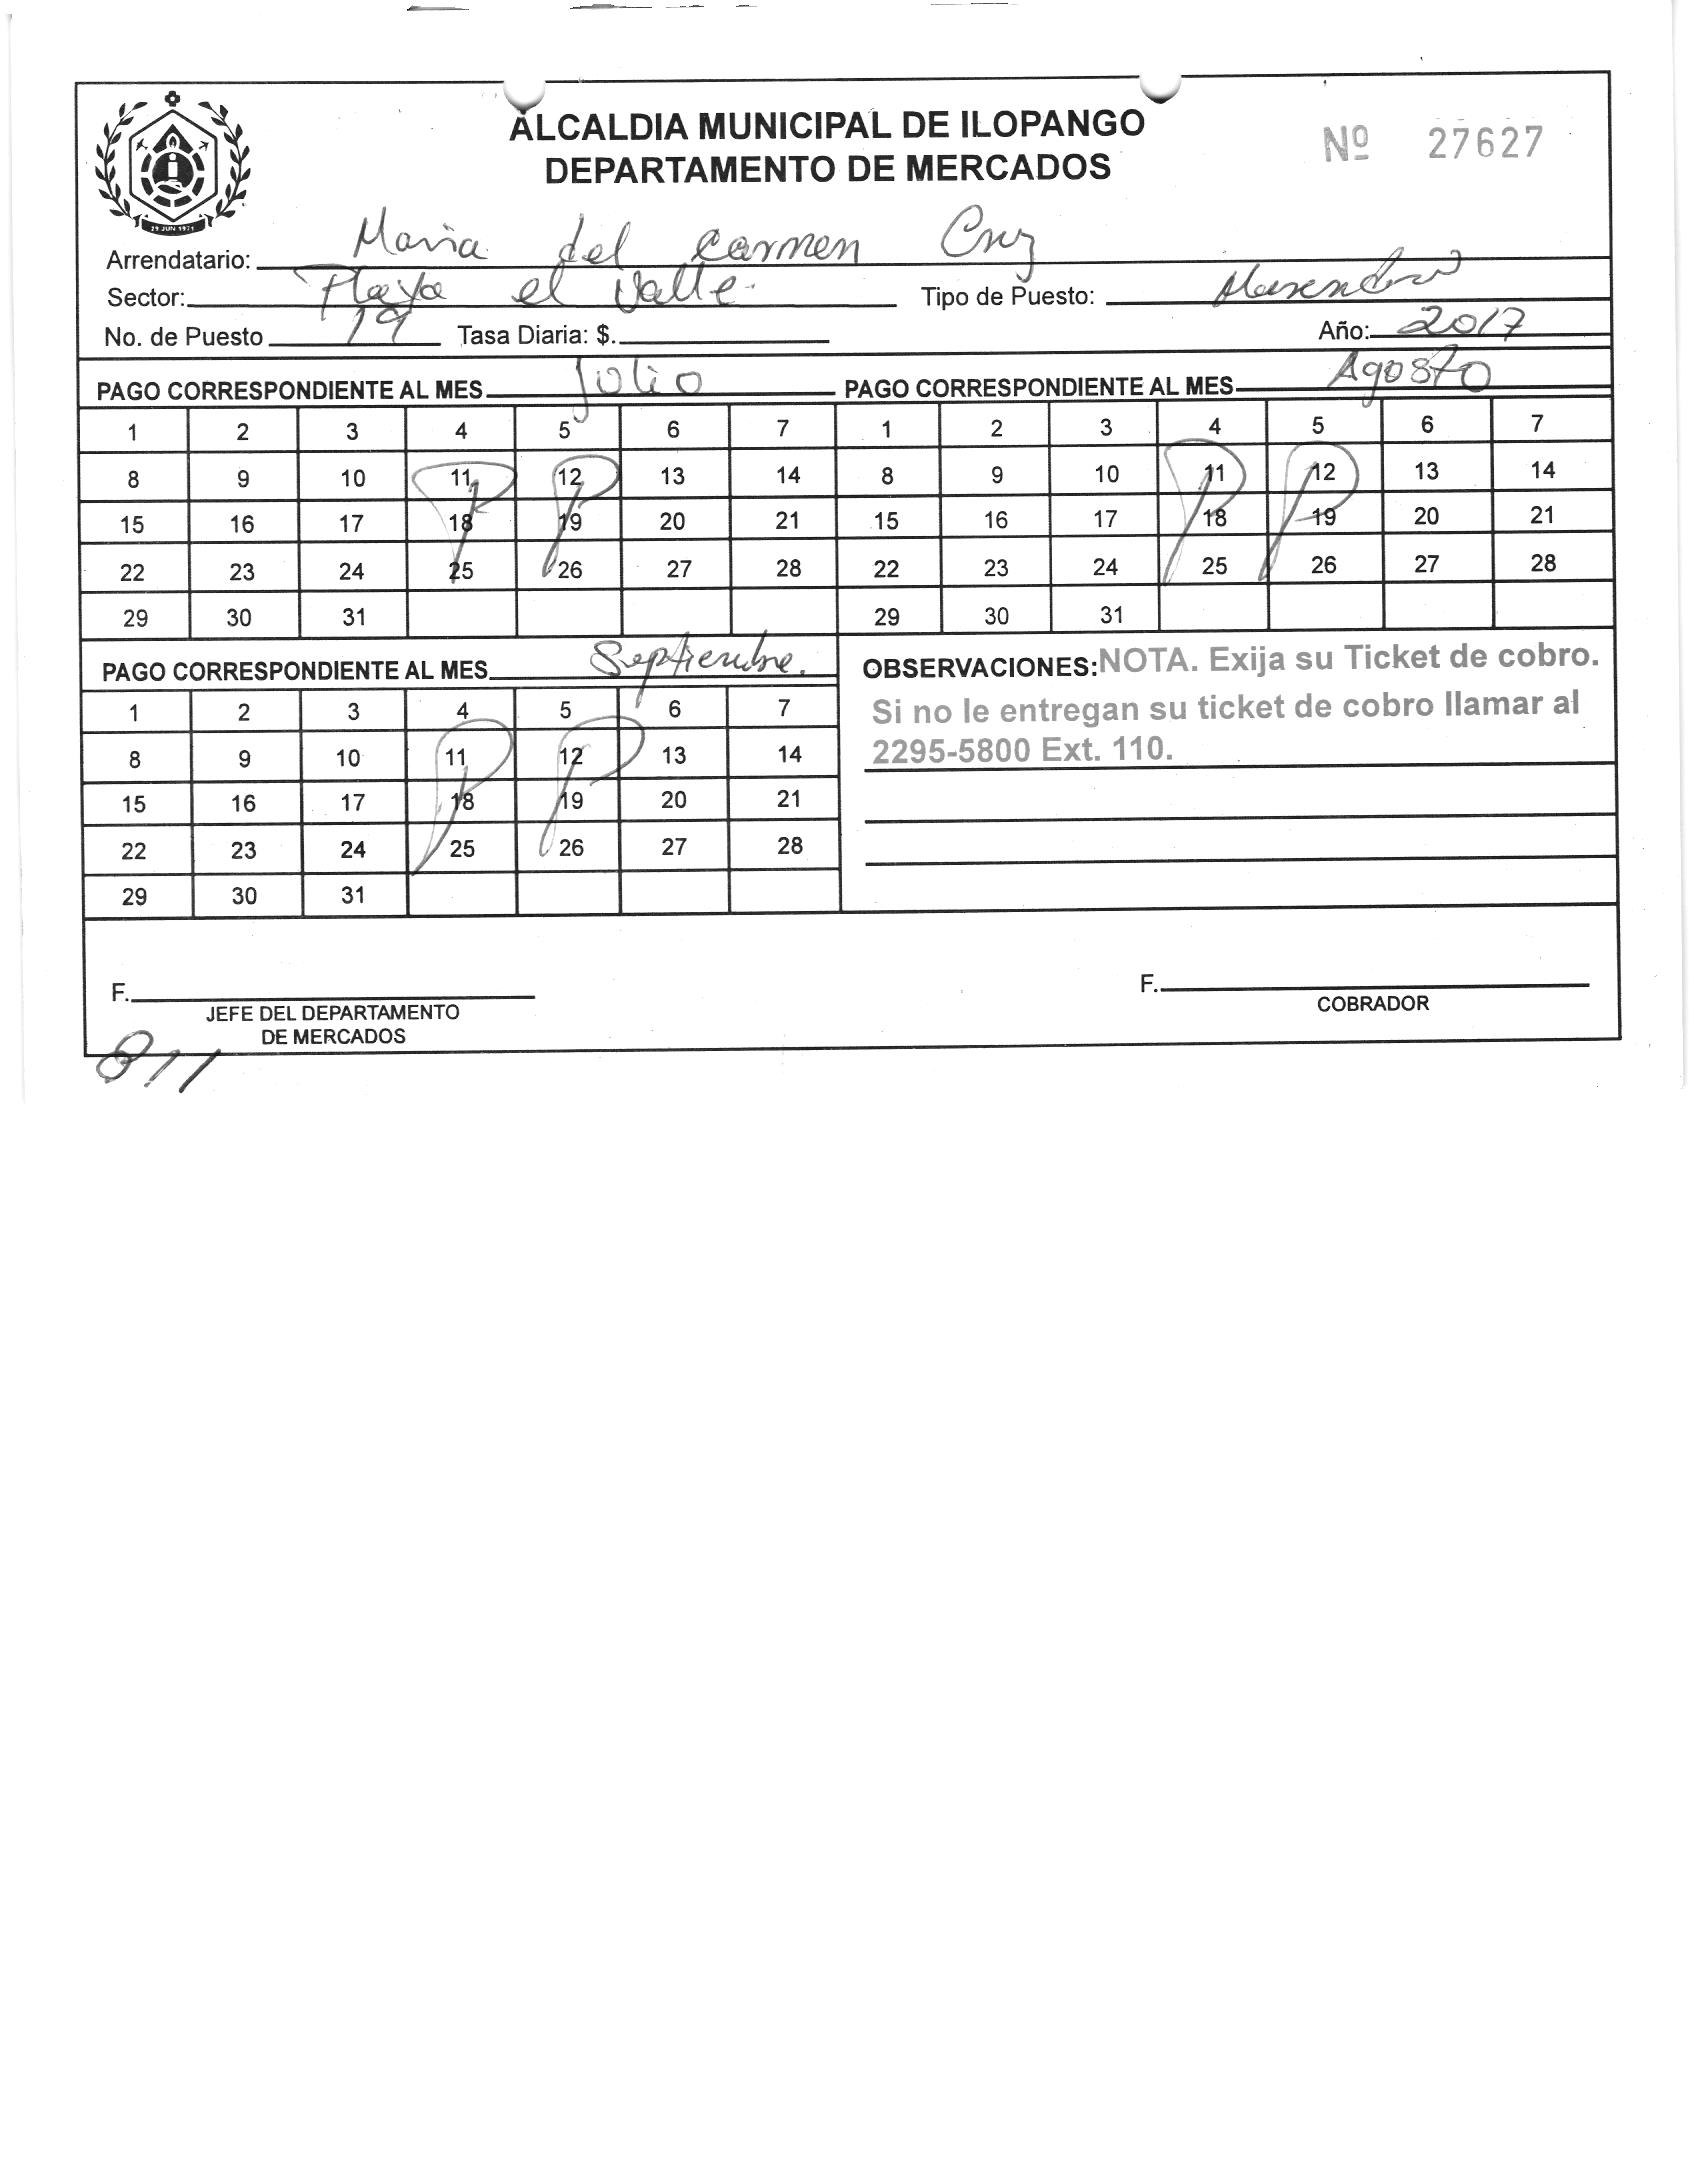 ALCALDIA MUNICIPAL DE ILOPANGO
DEPARTAMENTO DE MERCADOS
Nº 27627
29 JUN 1971
Arrendatario: Maria del Carmen Cruz
Sector: Playa el Valle. Tipo de Puesto:
No. de Puesto 19 Tasa Diaria: $. Año: 2017
PAGO CORRESPONDIENTE AL MES Julio PAGO CORRESPONDIENTE AL MES Agosto
1 2 3 4 5 6 7 1 2 3 4 5 6 7
8 9 10 11 12 13 14 8 9 10 11 12 13 14
15 16 17 18 19 20 21 15 16 17 18 19 20 21
22 23 24 25 26 27 28 22 23 24 25 26 27 28
29 30 31 29 30 31
P P P P
PAGO CORRESPONDIENTE AL MES Septiembre.
1 2 3 4 5 6 7
8 9 10 11 12 13 14
15 16 17 18 19 20 21
22 23 24 25 26 27 28
29 30 31
P P
OBSERVACIONES: NOTA. Exija su Ticket de cobro.
Si no le entregan su ticket de cobro llamar al
2295-5800 Ext. 110.
F. F.
JEFE DEL DEPARTAMENTO COBRADOR
DE MERCADOS